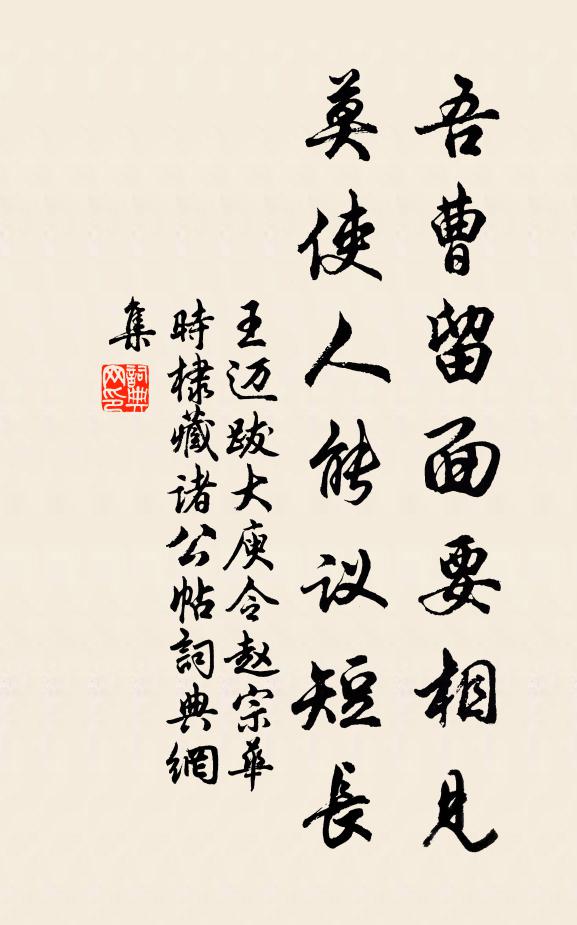 吾曹留面要相见
莫使人能议短長
王迈跋大庾令赵宗華
時棣藏诸公帖詞典網
集
詞典网印